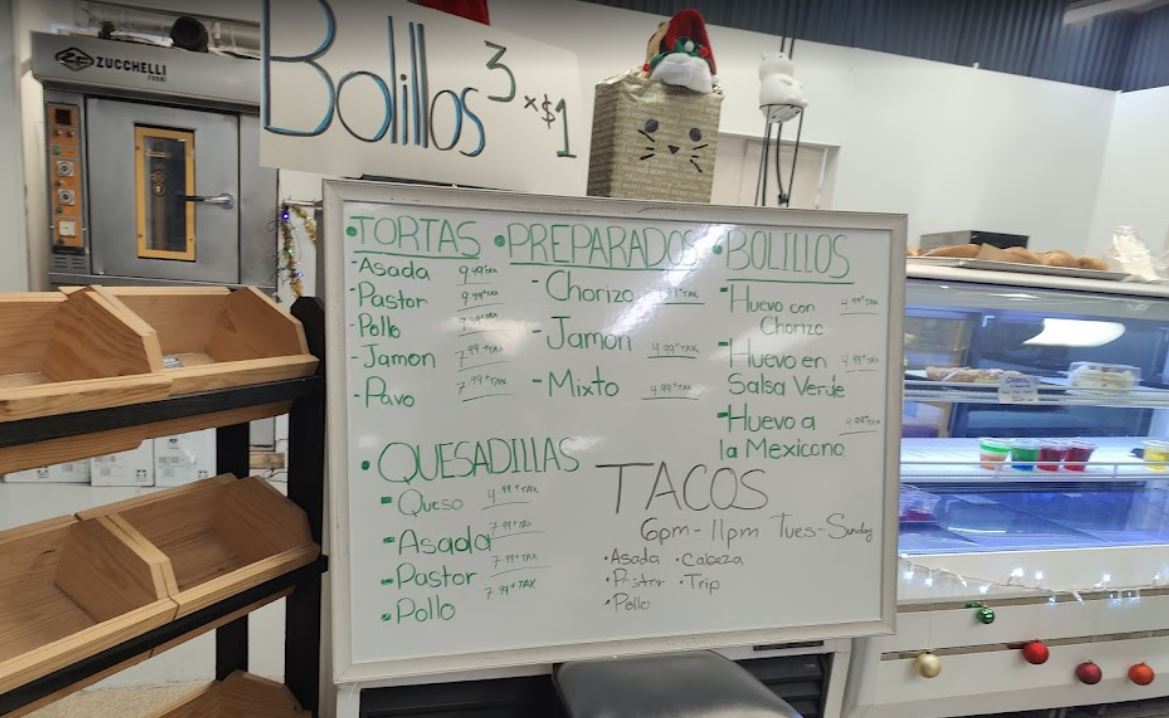 ZUCCHELLI
FORNI
Bolillos 3 x $1
• TORTAS
- Asada 9.49+TAX
- Pastor 9.99+TAX
- Pollo
- Jamon 7.99+TAX
- Pavo 7.99+TAX
• PREPARADOS
- Chorizo
- Jamon 4.99+TAX
- Mixto 4.99+TAX
• BOLILLOS
- Huevo con 4.99+TAX
Chorizo
- Huevo en 4.99+TAX
Salsa Verde
- Huevo a 4.99+TAX
la Mexicana
• QUESADILLAS
- Queso 4.99+TAX
- Asada 7.99+TAX
- Pastor 7.99+TAX
- Pollo 7.99+TAX
TACOS
6pm-11pm Tues-Sunday
• Asada • Cabeza
• Pastor • Trip
• Pollo